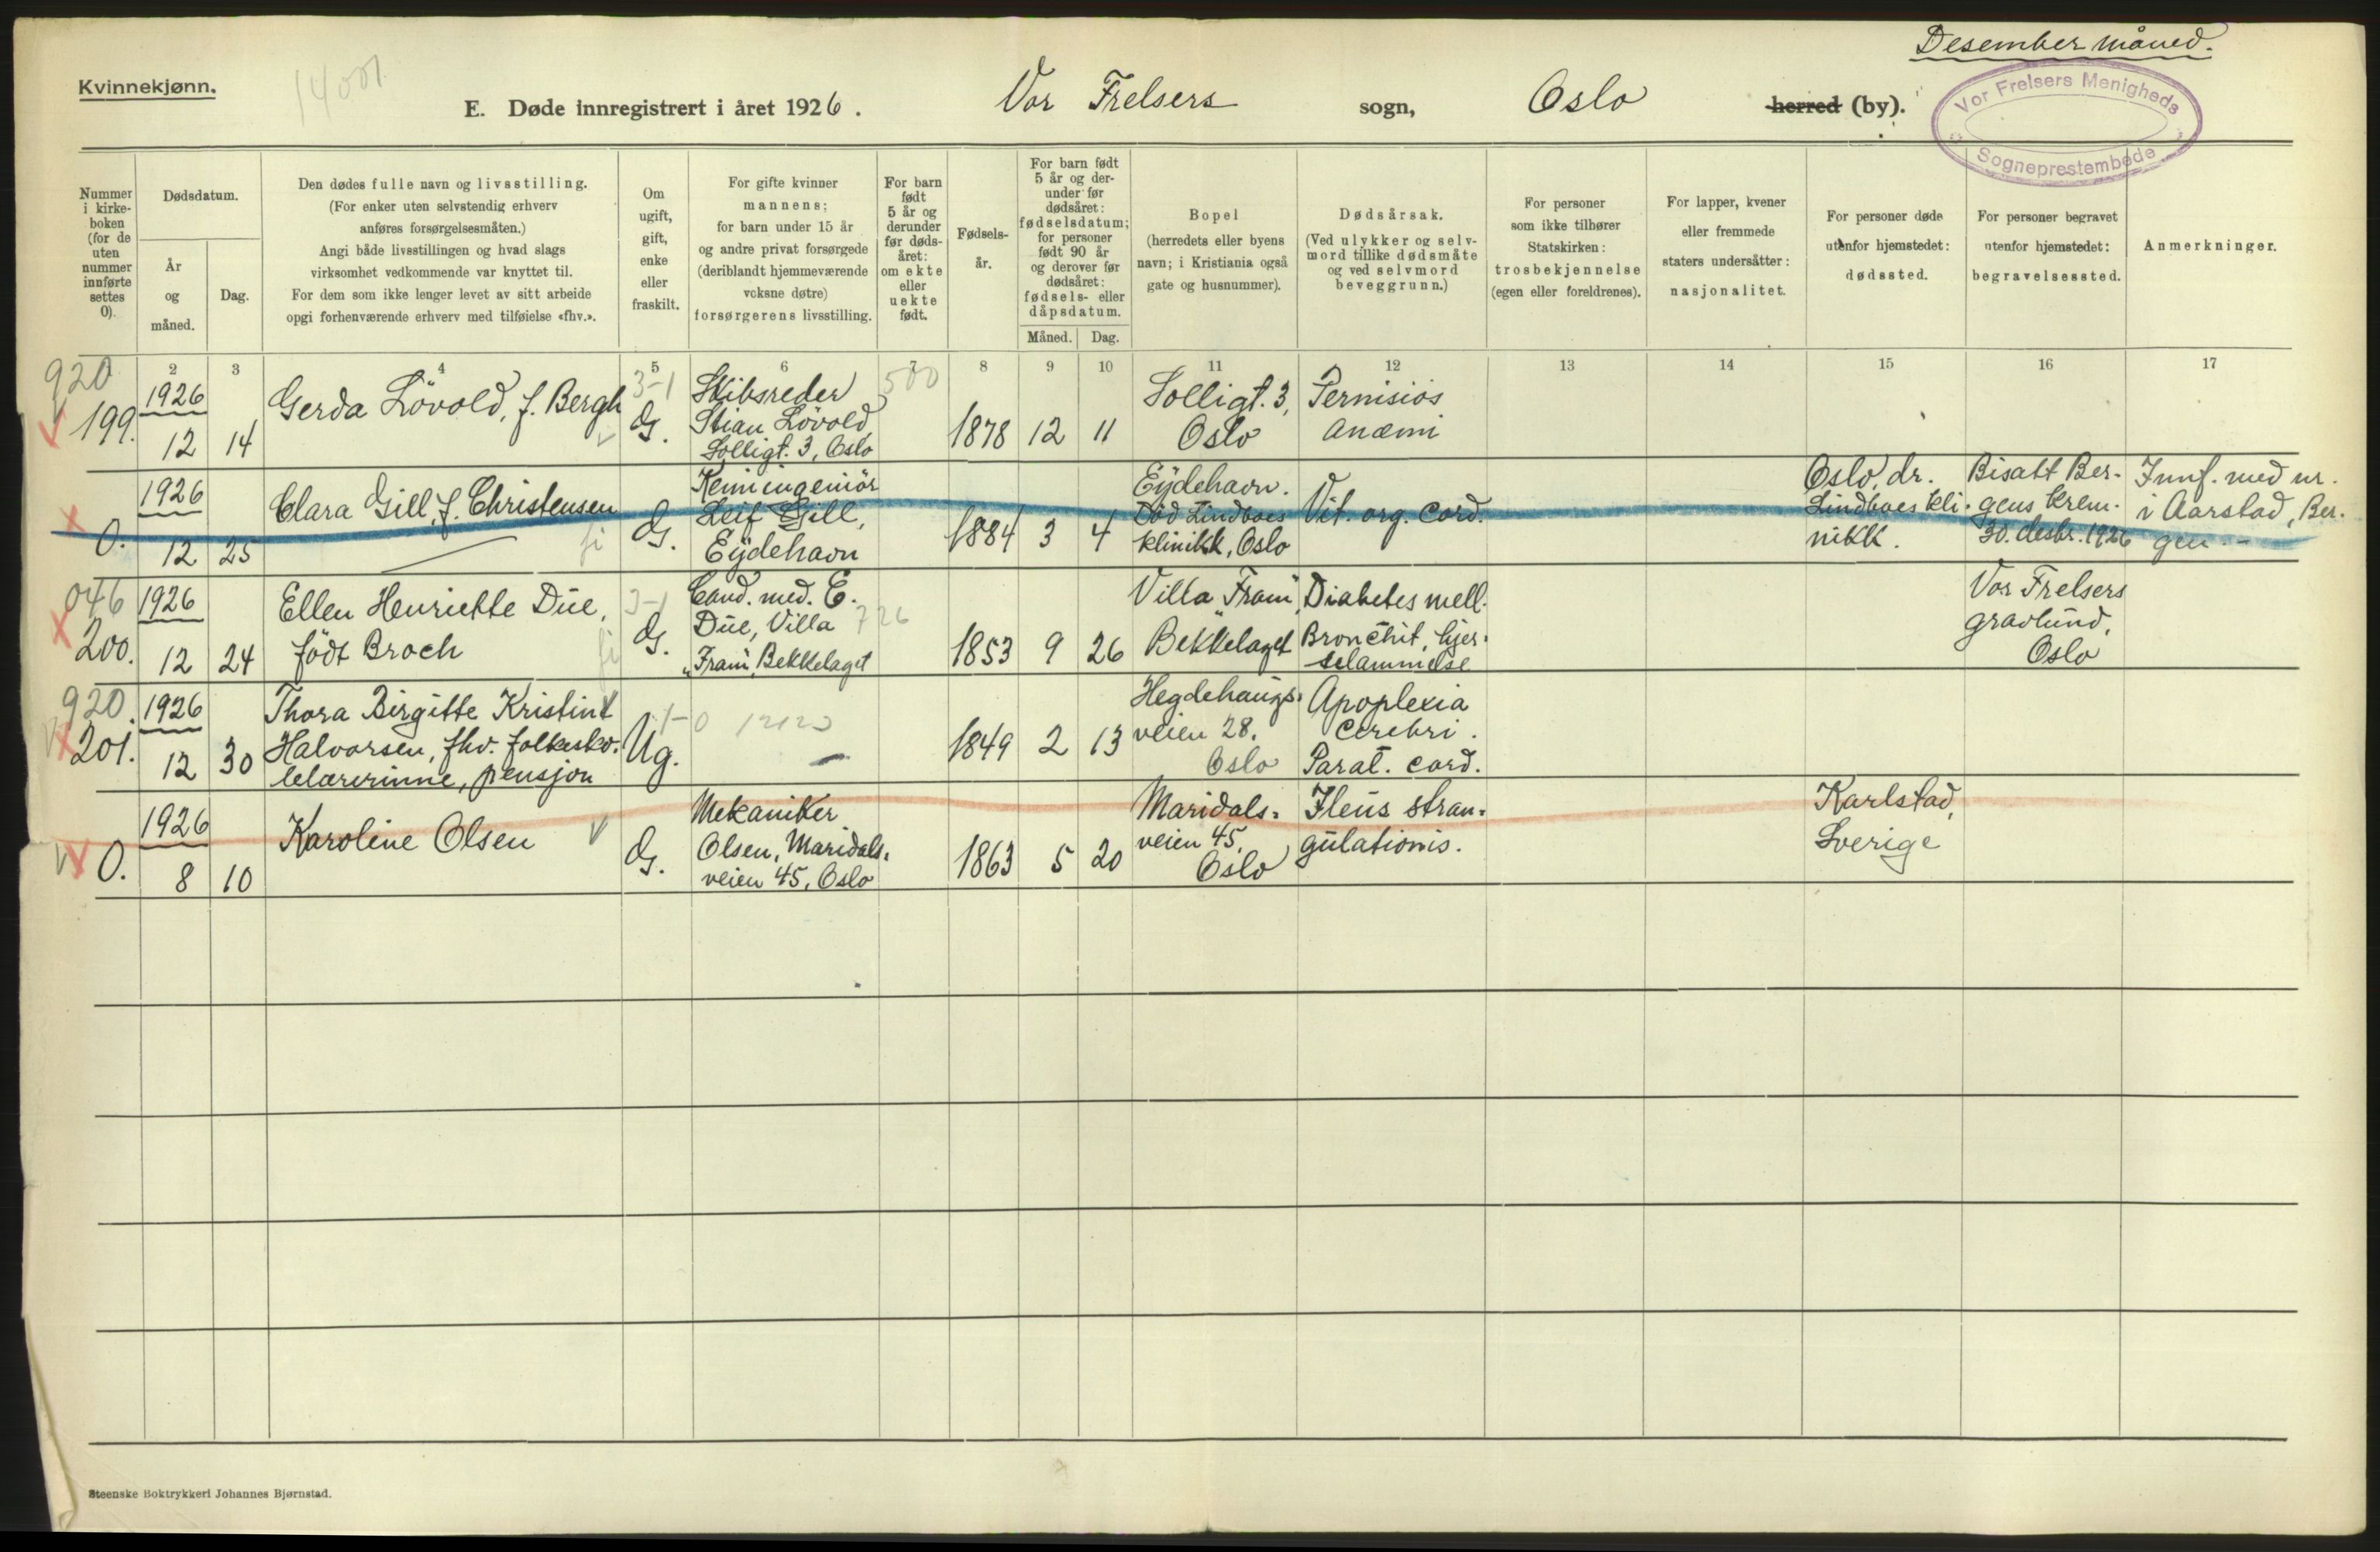 Desember måned.
Kvinnekjønn.
14001
E. Døde innregistrert i året 1926. Vor Frelsers sogn, Oslo herred (by).
Vor Frelsers Menigheds
Sogneprestembede
Nummer i kirke-boken (for de uten nummer innførte settes 0).
Dødsdatum.
År og måned.
Dag.
Den dødes fulle navn og livsstilling.
(For enker uten selvstendig erhverv
anføres forsørgelsesmåten.)
Angi både livsstillingen og hvad slags
virksomhet vedkommende var knyttet til.
For dem som ikke lenger levet av sitt arbeide
opgi forhenværende erhverv med tilføielse «fhv.».
Om
ugift,
gift,
enke
eller
fraskilt.
For gifte kvinner
mannens;
for barn under 15 år
og andre privat forsørgede
(deriblandt hjemmeværende
voksne døtre)
forsørgerens livsstilling.
For barn
født
5 år og
derunder
før døds-
året:
om ekte
eller
uekte
født.
Fødsels-
år.
For barn født
5 år og der-
under før
dødsåret:
fødselsdatum;
for personer
født 90 år
og derover før
dødsåret:
fødsels- eller
dåpsdatum.
Måned. Dag.
Bopel
(herredets eller byens
navn; i Kristiania også
gate og husnummer).
Dødsårsak.
(Ved ulykker og selv-
mord tillike dødsmåte
og ved selvmord
beveggrunn.)
For personer
som ikke tilhører
Statskirken:
trosbekjennelse
(egen eller foreldrenes).
For lapper, kvener
eller fremmede
staters undersåtter:
nasjonalitet.
For personer døde
utenfor hjemstedet:
dødssted.
For personer begravet
utenfor hjemstedet:
begravelsessted.
Anmerkninger.
2 3 4 5 6 7 8 9 10 11 12 13 14 15 16 17
920
199.
1926
12 14
Gerda Lövold, f. Bergh
3-1
G.
Skibsreder
Stian Lövold
Solligt. 3, Oslo
500
1878 12 11
Solligt. 3,
Oslo
Pernisiøs
anæmi
0.
1926
12 25
Clara Gill, f. Christensen
G.
Kemiingeniör
Leif Gill,
Eydehavn
1884 3 4
Eydehavn.
Död Lindboes
klinikk, Oslo
Vit. org. cord.
Oslo, dr.
Lindboes kli-
nikk.
Bisatt Ber-
gens krem.
30. desbr. 1926
Innf. med nr.
i Aarstad, Ber-
gen.
046
200.
1926
12 24
Ellen Henriette Düe,
født Broch
3-1
G.
Cand. med. E.
Düe, Villa
„Fram", Bekkelaget
726
1853 9 26
Villa „Fram",
Bekkelaget
Diabetes mell.
Bronchit, hjer-
telammelse
Vor Frelsers
gravlund,
Oslo
920.
201.
1926
12 30
Thora Birgitte Kristine
Halvorsen, fhv. folkesko-
lelærerinne, pensjon
Ug.
1849 2 13
Hegdehaugs-
veien 28.
Oslo
Apoplexia
cerebri.
Paral. cord.
0.
1926
8 10
Karoline Olsen
G.
Mekaniker
Olsen, Maridals-
veien 45, Oslo
1863 5 20
Maridals-
veien 45,
Oslo
Ileus stran-
gulationis.
Karlstad,
Sverige
Steenske Boktrykkeri Johannes Bjørnstad.